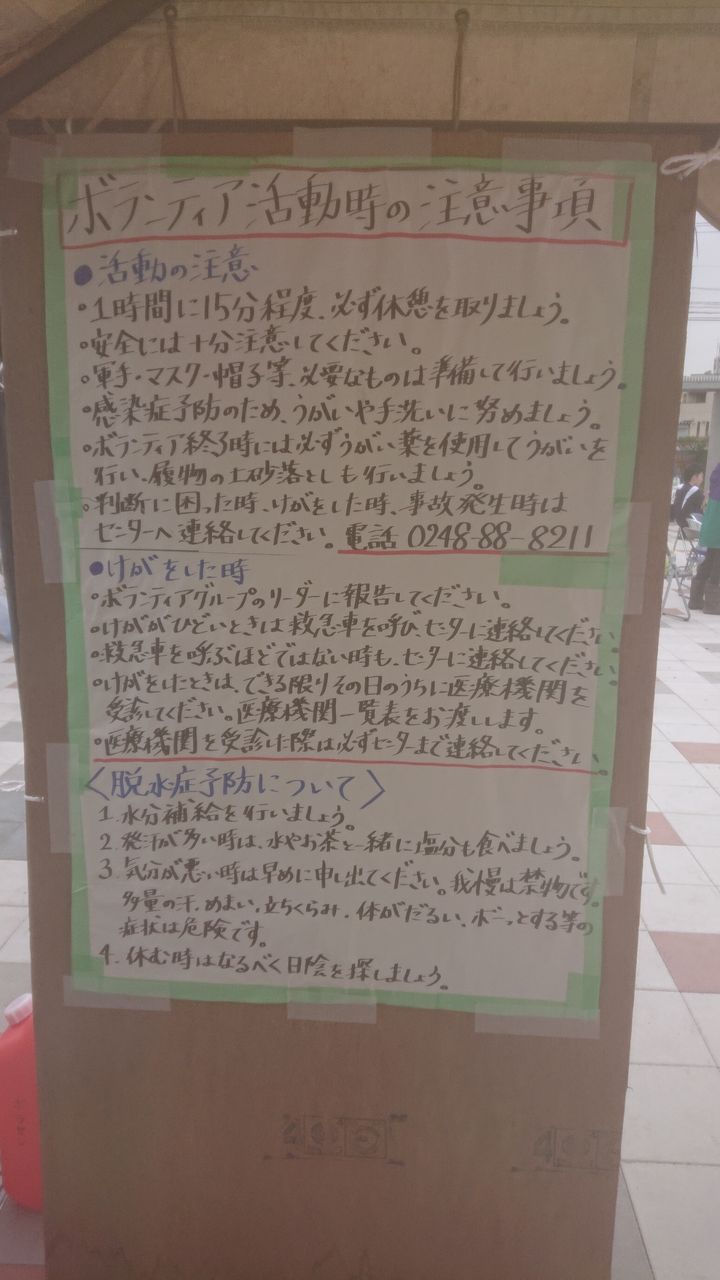 ボランティア活動時の注意事項
●活動の注意
・1時間に15分程度、必ず休憩を取りましょう。
・安全には十分注意してください。
・軍手・マスク・帽子等、必要なものは準備して行いましょう。
・感染症予防のため、うがいや手洗いに努めましょう。
・ボランティア終了時には必ずうがい薬を使用してうがいを
行い、履物の土砂落としも行いましょう。
・判断に困った時、けがをした時、事故発生時は
センターへ連絡してください。電話 0248-88-8211
●けがをした時
・ボランティアグループのリーダーに報告してください。
・けががひどいときは救急車を呼び、センターに連絡してください。
・救急車を呼ぶほどではない時も、センターに連絡してください。
・けがをしたときは、できる限りその日のうちに医療機関を
受診してください。医療機関一覧表をお渡しします。
・医療機関を受診した際は必ずセンターまで連絡してください。
〈脱水症予防について〉
1. 水分補給を行いましょう。
2. 発汗が多い時は、水やお茶と一緒に塩分も食べましょう。
3. 気分が悪い時は早めに申し出てください。我慢は禁物です。
多量の汗、めまい、立ちくらみ、体がだるい、ボーッとする等の
症状は危険です。
4. 休む時はなるべく日陰を探しましょう。